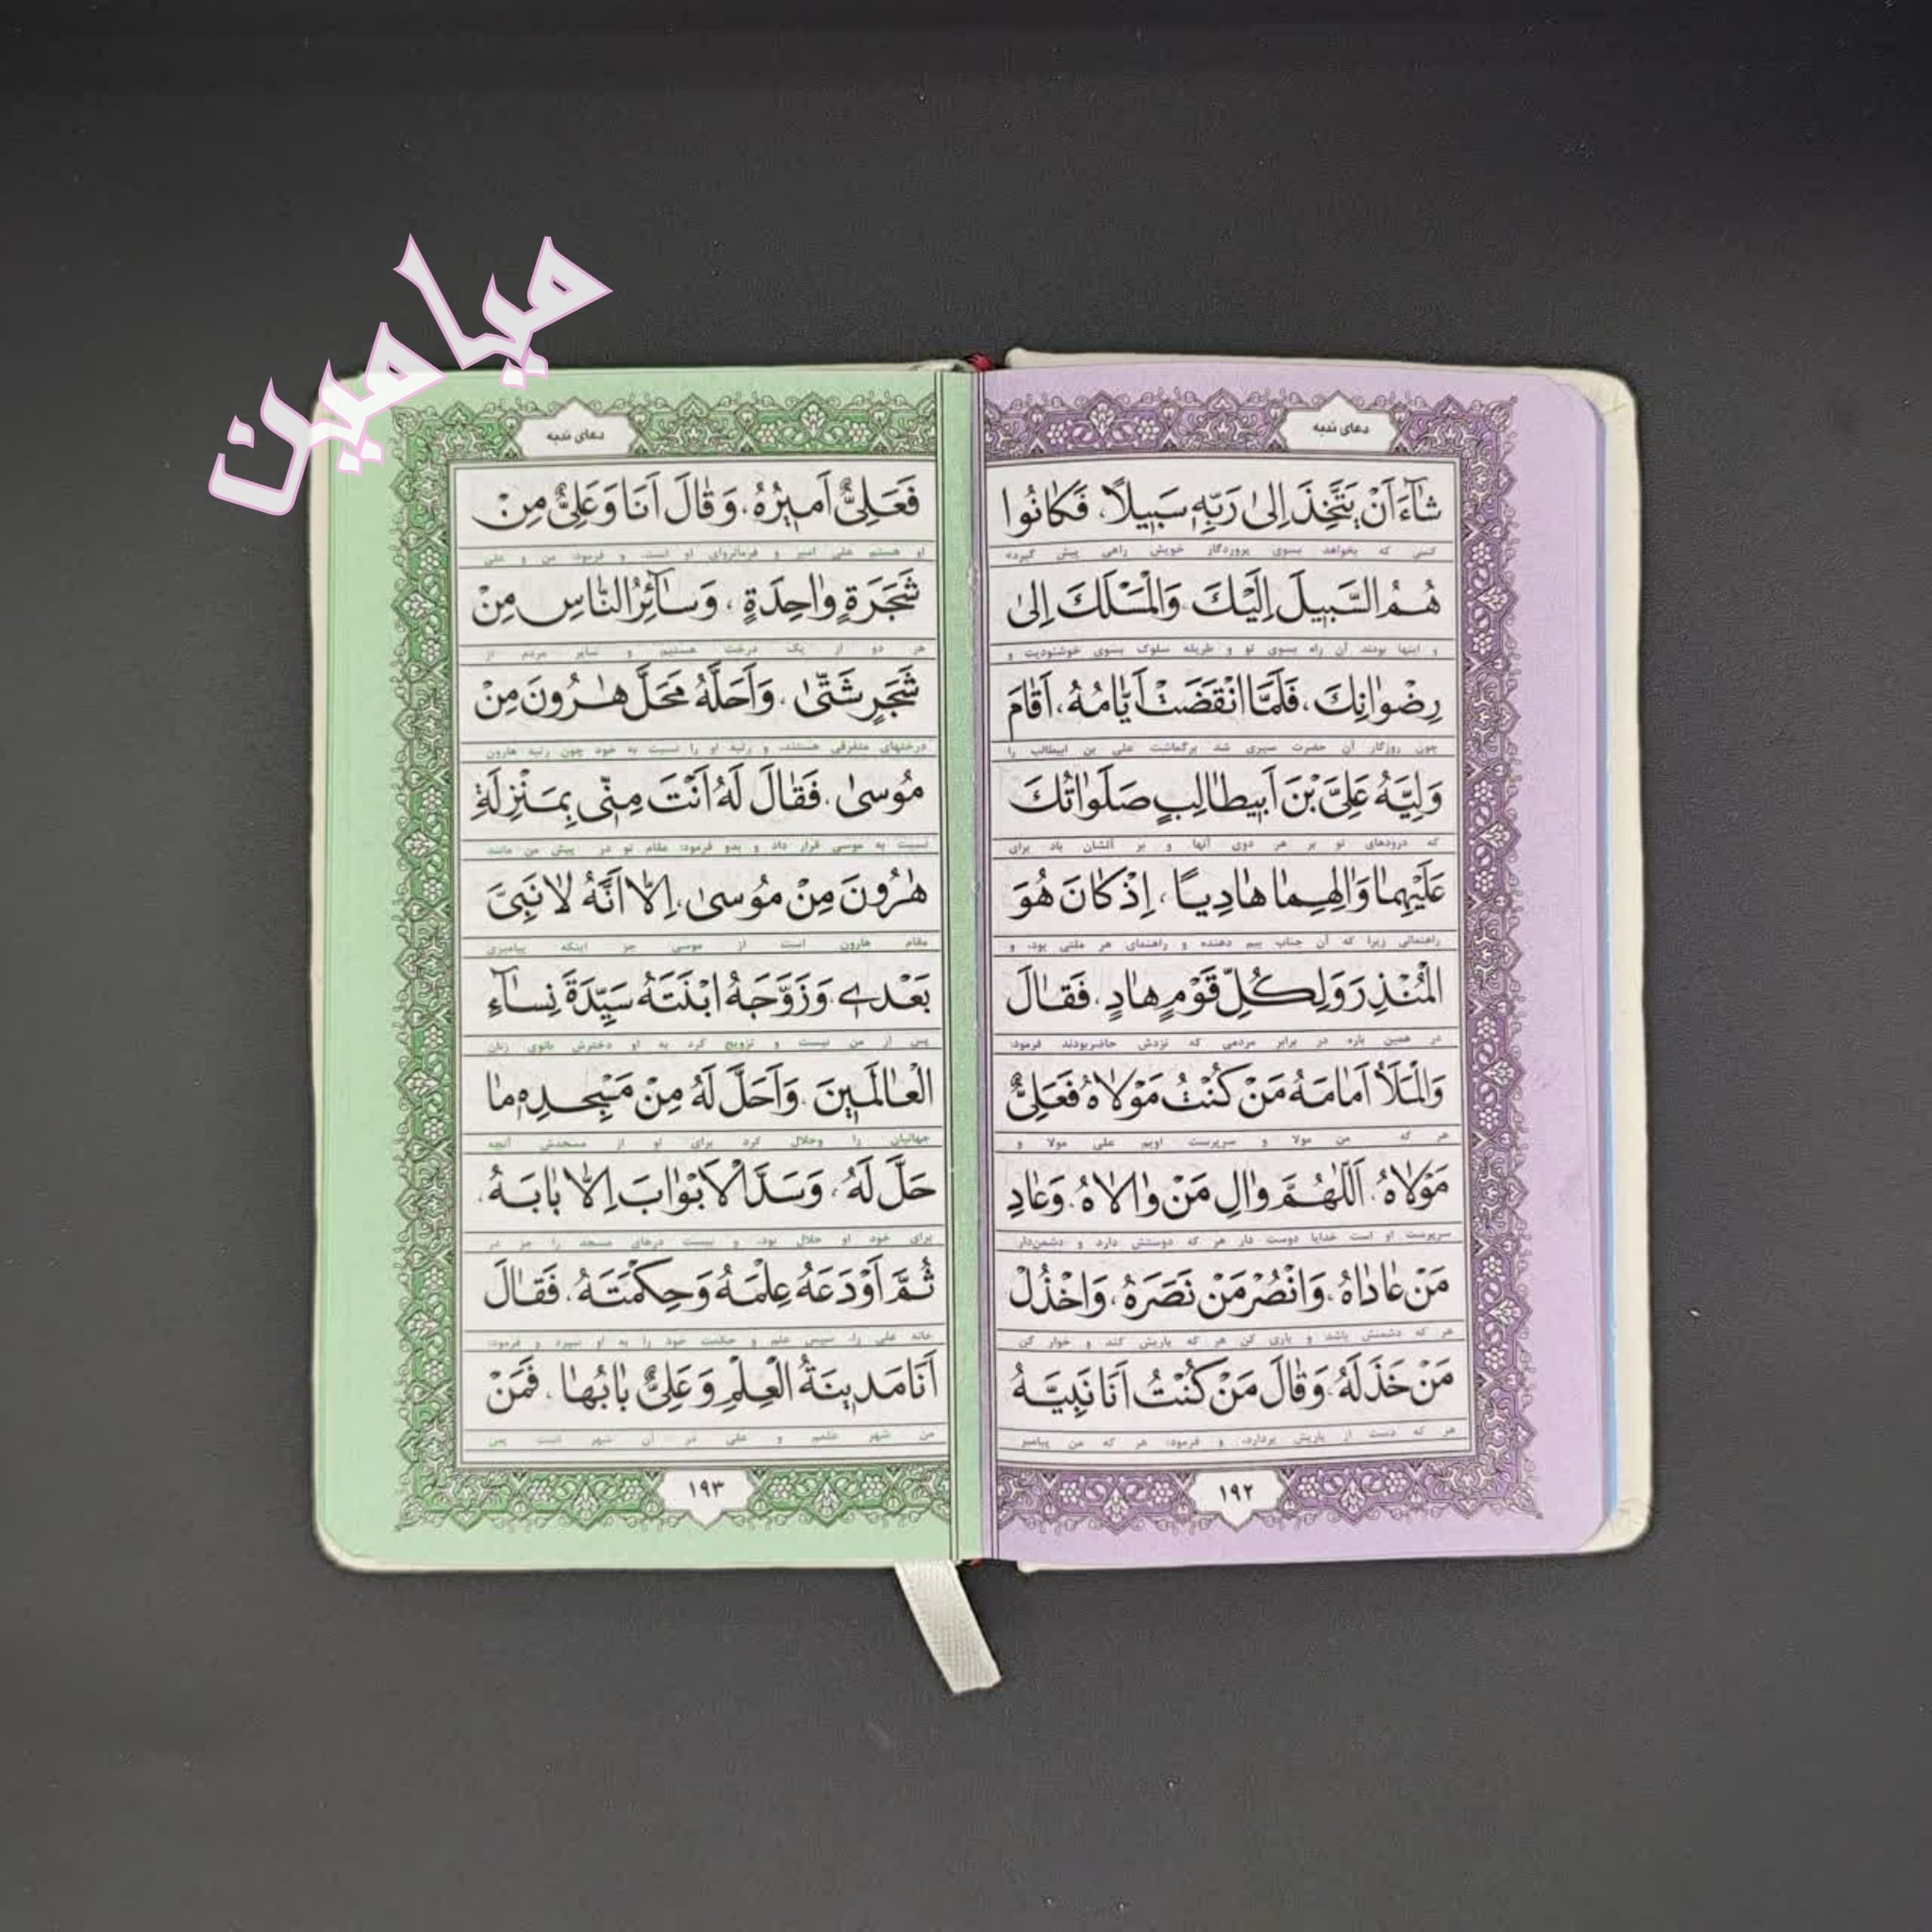 میامین
دعای ندبه
شآءَ اَنْ يَتَّخِذَ اِلىٰ رَبِّهٖ سَبيلاً، فَكانُوا
كسى كه بخواهد بسوى پروردگار خويش راهى پيش گيرد»
هُمُ السَّبيلَ اِلَيْكَ وَالْمَسْلَكَ اِلىٰ
و اينها بودند آن راه بسوى تو و طريقه سلوک بسوى خوشنوديت و
رِضْوانِكَ، فَلَمَّا انْقَضَتْ اَيّامُهُ، اَقامَ
چون روزگار آن حضرت سپرى شد برگماشت على بن ابيطالب را
وَلِيَّهُ عَلِىَّ بْنَ اَبيطالِبٍ صَلَواتُكَ
كه درودهاى تو بر هر دوى آنها و بر آلشان باد براى
عَلَيْهِما وَالِهِما هادِياً، اِذْ كانَ هُوَ
راهنمائى زيرا كه آن جناب بيم دهنده و راهنماى هر ملتى بود، و
الْمُنْذِرَ وَلِكُلِّ قَوْمٍ هادٍ، فَقالَ
در همين باره در برابر مردمى كه نزدش حاضربودند فرمود:
وَالْمَلَأُ اَمامَهُ مَنْ كُنْتُ مَوْلاهُ فَعَلِىٌّ
هر كه من مولا و سرپرست اويم على مولا و
مَوْلاهُ، اَللّهُمَّ والِ مَنْ والاهُ، وَعادِ
سرپرست او است خدايا دوست دار هر كه دوستش دارد و دشمن‌دار
مَنْ عاداهُ، وَانْصُرْ مَنْ نَصَرَهُ، وَاخْذُلْ
هر كه دشمنش باشد و يارى كن هر كه ياريش كند و خوار كن
مَنْ خَذَلَهُ، وَقالَ مَنْ كُنْتُ اَنَا نَبِيَّهُ
هر كه دست از ياريش بردارد، و فرمود: هر كه من پيامبر
۱۹۲
دعای ندبه
فَعَلِىٌّ اَميرُهُ، وَقالَ اَنَا وَعَلِىٌّ مِنْ
او هستم على امير و فرمانرواى او است، و فرمود: من و على
شَجَرَةٍ واحِدَةٍ، وَسآئِرُ النّاسِ مِنْ
هر دو از يک درخت هستيم و ساير مردم از
شَجَرٍ شَتّىٰ، وَاَحَلَّهُ مَحَلَّ هٰرُونَ مِنْ
درختهاى متفرقى هستند، و رتبه او را نسبت به خود چون رتبه هارون
مُوسىٰ، فَقالَ لَهُ اَنْتَ مِنّى بِمَنْزِلَةِ
نسبت به موسى قرار داد و بدو فرمود: مقام تو در پيش من مانند
هٰرُونَ مِنْ مُوسىٰ، اِلاّ اَنَّهُ لا نَبِىَّ
مقام هارون است از موسى جز اينكه پيامبرى
بَعْدى، وَزَوَّجَهُ ابْنَتَهُ سَيِّدَةَ نِسآءِ
پس از من نيست و تزويج كرد به او دخترش بانوى زنان
الْعالَمينَ، وَاَحَلَّ لَهُ مِنْ مَسْجِدِهٖ ما
جهانيان را وحلال كرد براى او از مسجدش آنچه
حَلَّ لَهُ، وَسَدَّ الْاَبْوابَ اِلاّ بابَهُ،
براى خود او حلال بود، و ببست درهاى مسجد را جز در
ثُمَّ اَوْدَعَهُ عِلْمَهُ وَحِكْمَتَهُ، فَقالَ
خانه على را، سپس علم و حكمت خود را به او سپرد و فرمود:
اَنَا مَدينَةُ الْعِلْمِ وَعَلِىٌّ بابُها، فَمَنْ
من شهر علمم و على در آن شهر است پس
۱۹۳